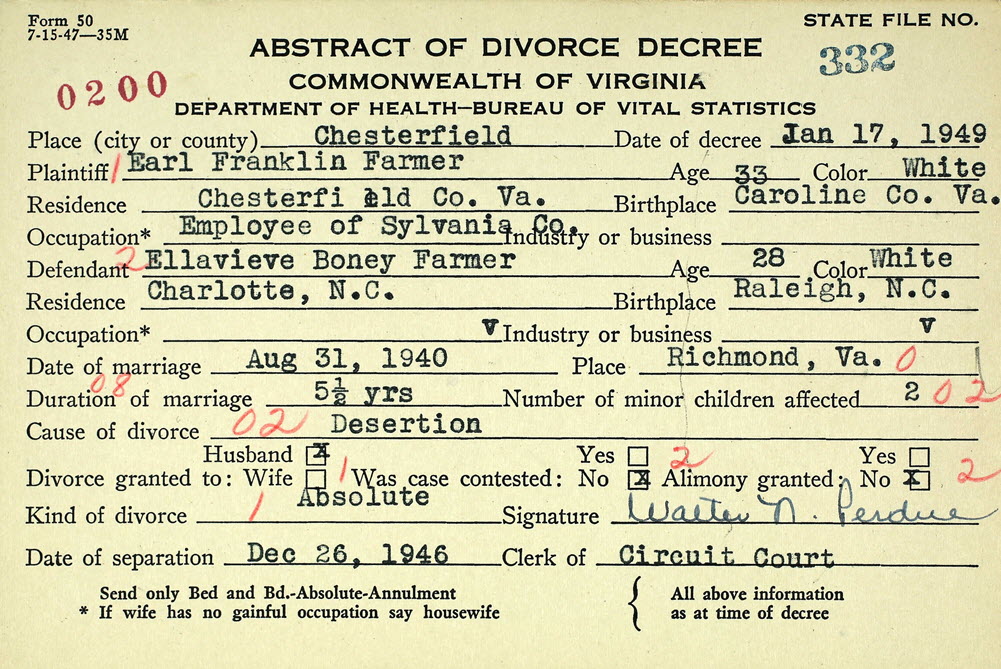 Form 50
7-15-47—35M
STATE FILE NO.
332
ABSTRACT OF DIVORCE DECREE
0200
COMMONWEALTH OF VIRGINIA
DEPARTMENT OF HEALTH—BUREAU OF VITAL STATISTICS
Place (city or county) Chesterfield Date of decree Jan 17, 1949
Plaintiff 1 Earl Franklin Farmer Age 33 Color White
Residence Chesterfi eld Co. Va. Birthplace Caroline Co. Va.
Occupation* Employee of Sylvania Co. Industry or business
Defendant 2 Ellavieve Boney Farmer Age 28 Color White
Residence Charlotte, N.C. Birthplace Raleigh, N.C.
Occupation* v Industry or business v
Date of marriage Aug 31, 1940 Place Richmond, Va. 0
Duration 08 of marriage 5½ yrs Number of minor children affected 2 02
Cause of divorce 02 Desertion
Husband x Yes 2 Yes
Divorce granted to: Wife 1 Was case contested: No x Alimony granted: No x 2
Kind of divorce 1 Absolute Signature Walter N. Perdue
Date of separation Dec 26, 1946 Clerk of Circuit Court
Send only Bed and Bd.-Absolute-Annulment { All above information
* If wife has no gainful occupation say housewife as at time of decree